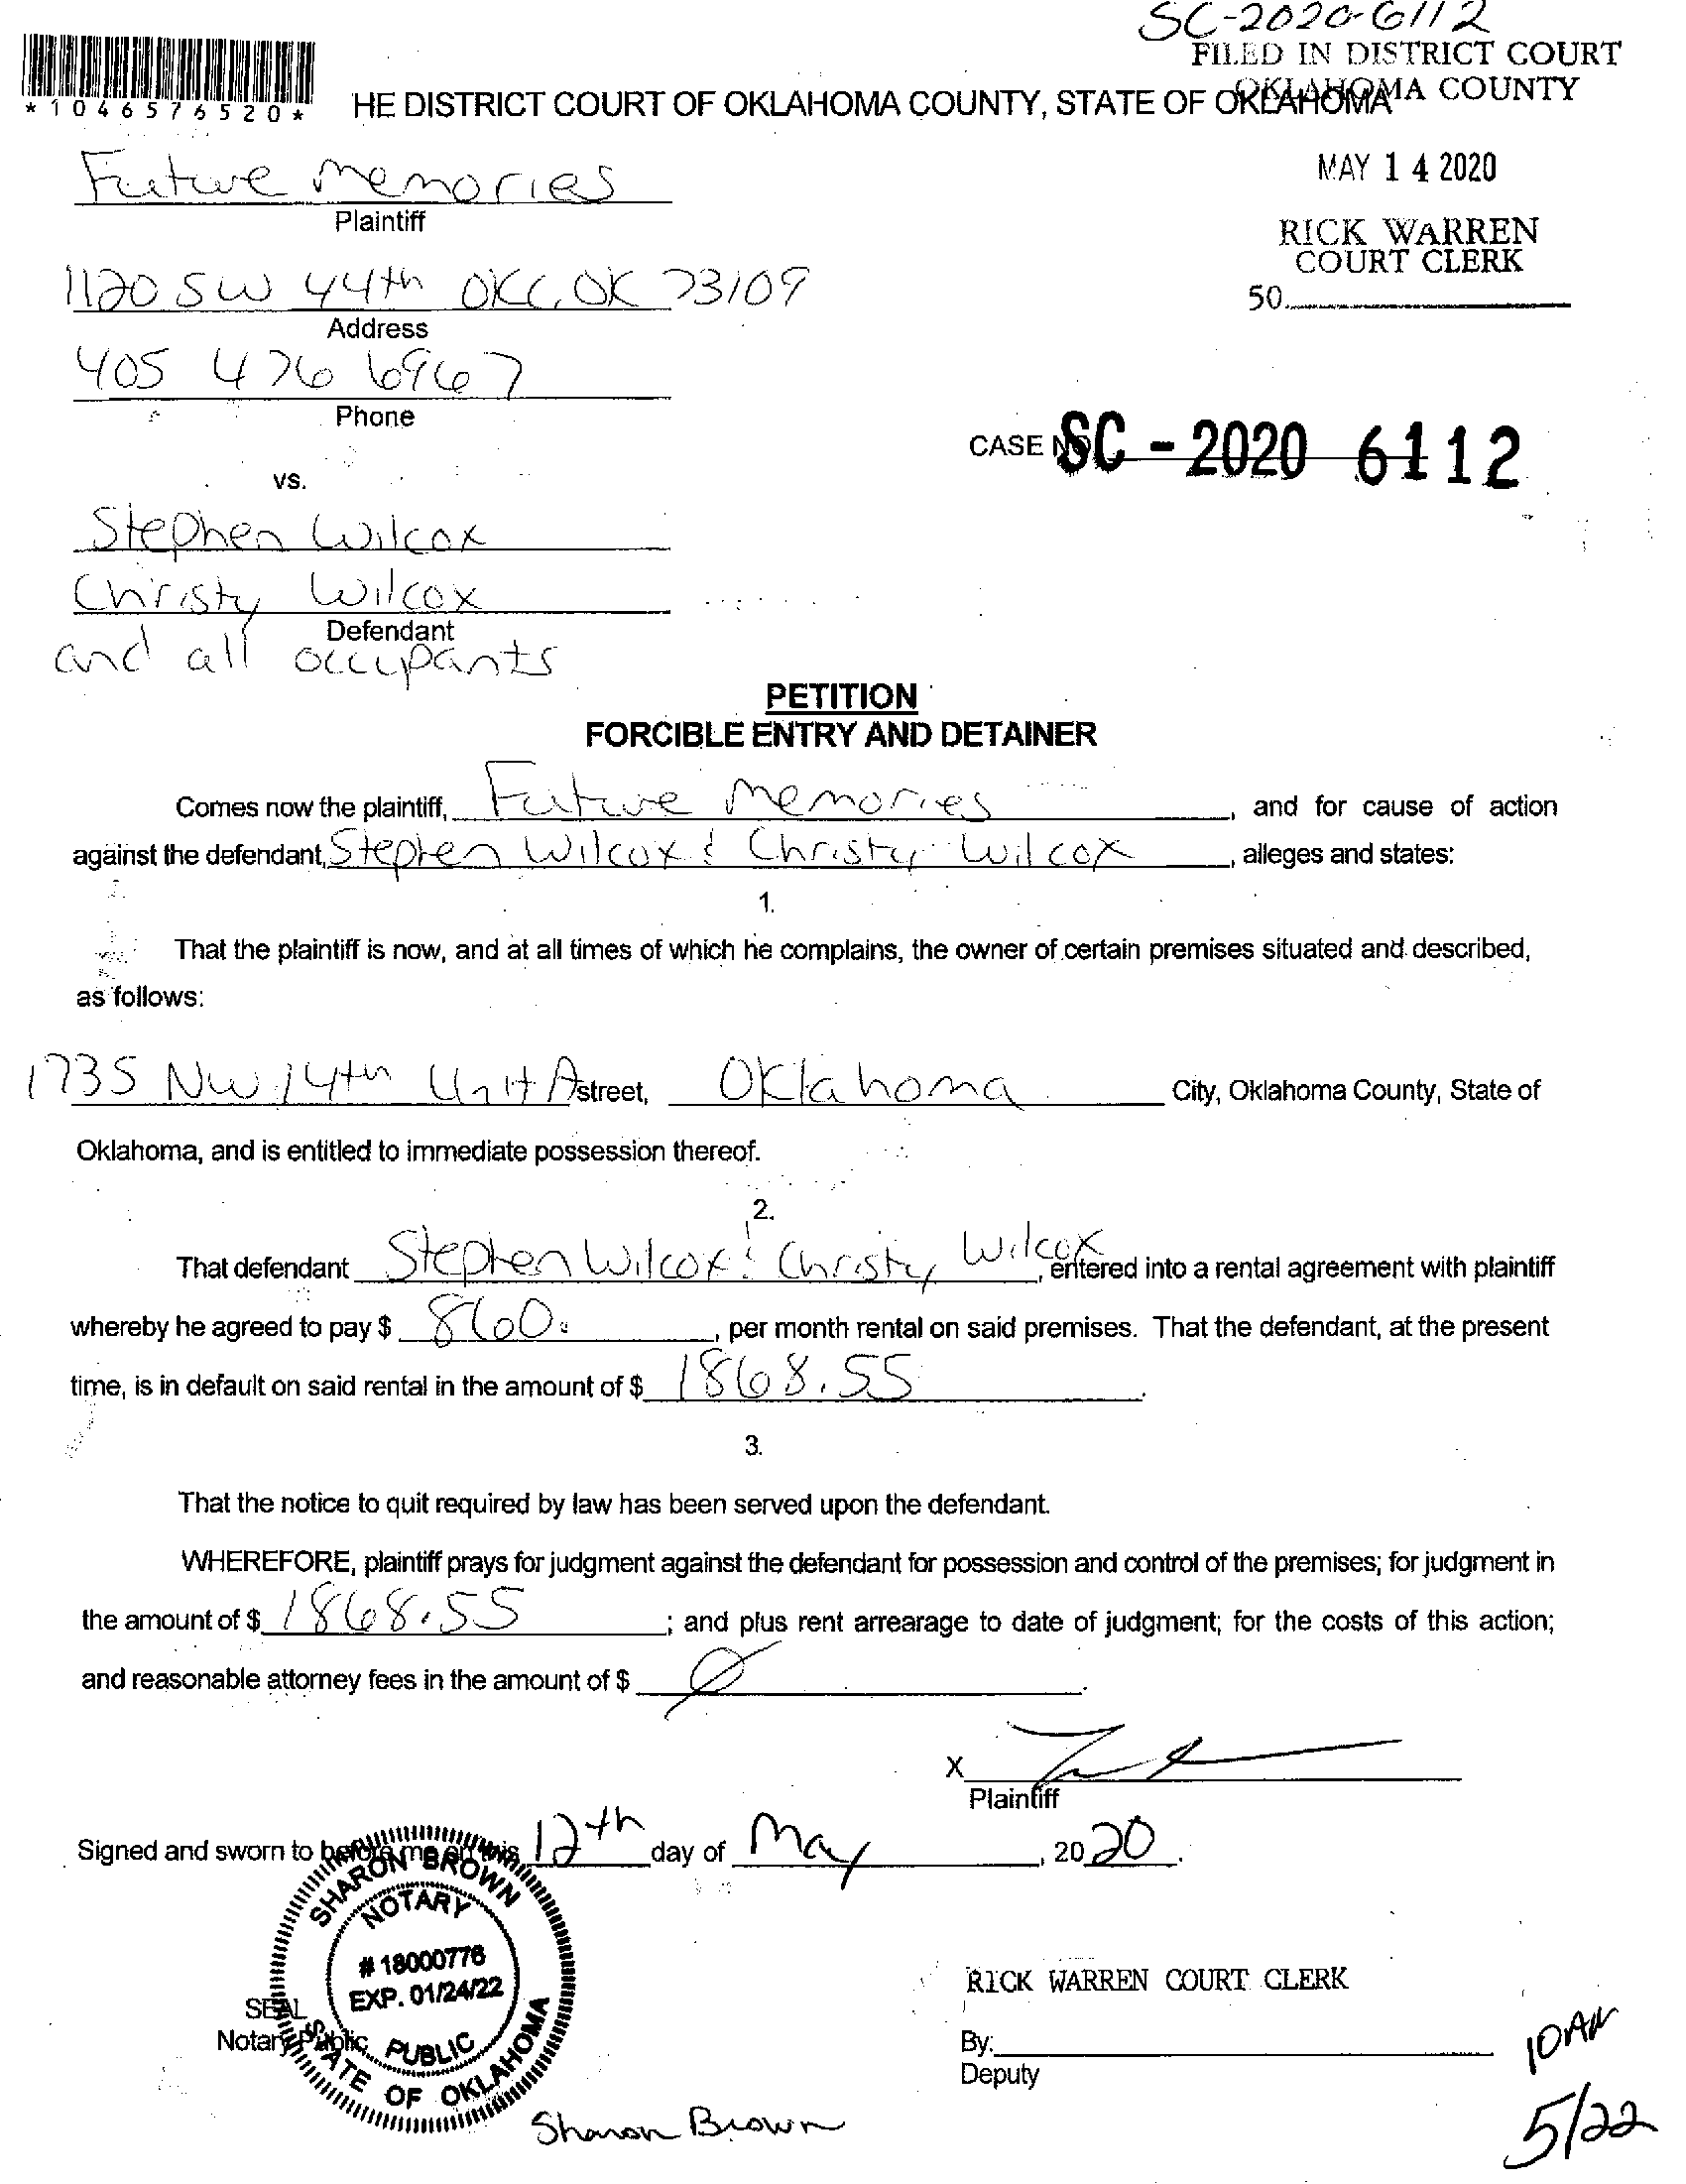 SC-2020-6112
FILED IN DISTRICT COURT
OKLAHOMA COUNTY
*1046576520*
HE DISTRICT COURT OF OKLAHOMA COUNTY, STATE OF OKLAHOMA
MAY 14 2020
RICK WARREN
COURT CLERK
50.
Future Memories
Plaintiff
1120 SW 44th OKC, OK 73109
Address
405 476 6967
Phone
CASE NO. SC - 2020 6112
vs.
Stephen Wilcox
Christy Wilcox
Defendant
and all occupants
PETITION
FORCIBLE ENTRY AND DETAINER
Comes now the plaintiff, Future Memories, and for cause of action
against the defendant, Stephen Wilcox & Christy Wilcox, alleges and states:
1.
That the plaintiff is now, and at all times of which he complains, the owner of certain premises situated and described,
as follows:
1735 NW 14th Unit A street, Oklahoma City, Oklahoma County, State of
Oklahoma, and is entitled to immediate possession thereof.
2.
That defendant Stephen Wilcox & Christy Wilcox, entered into a rental agreement with plaintiff
whereby he agreed to pay $ 860., per month rental on said premises. That the defendant, at the present
time, is in default on said rental in the amount of $ 1868.55.
3.
That the notice to quit required by law has been served upon the defendant.
WHEREFORE, plaintiff prays for judgment against the defendant for possession and control of the premises; for judgment in
the amount of $ 1868.55; and plus rent arrearage to date of judgment; for the costs of this action;
and reasonable attorney fees in the amount of $ Ø.
X
Plaintiff
Signed and sworn to before me on this 12th day of May, 2020.
SHARON BROWN
NOTARY
# 18000776
EXP. 01/24/22
PUBLIC
STATE OF OKLAHOMA
SEAL
Notary Public
Sharon Brown
RICK WARREN COURT CLERK
By:
Deputy
10AM
5/22